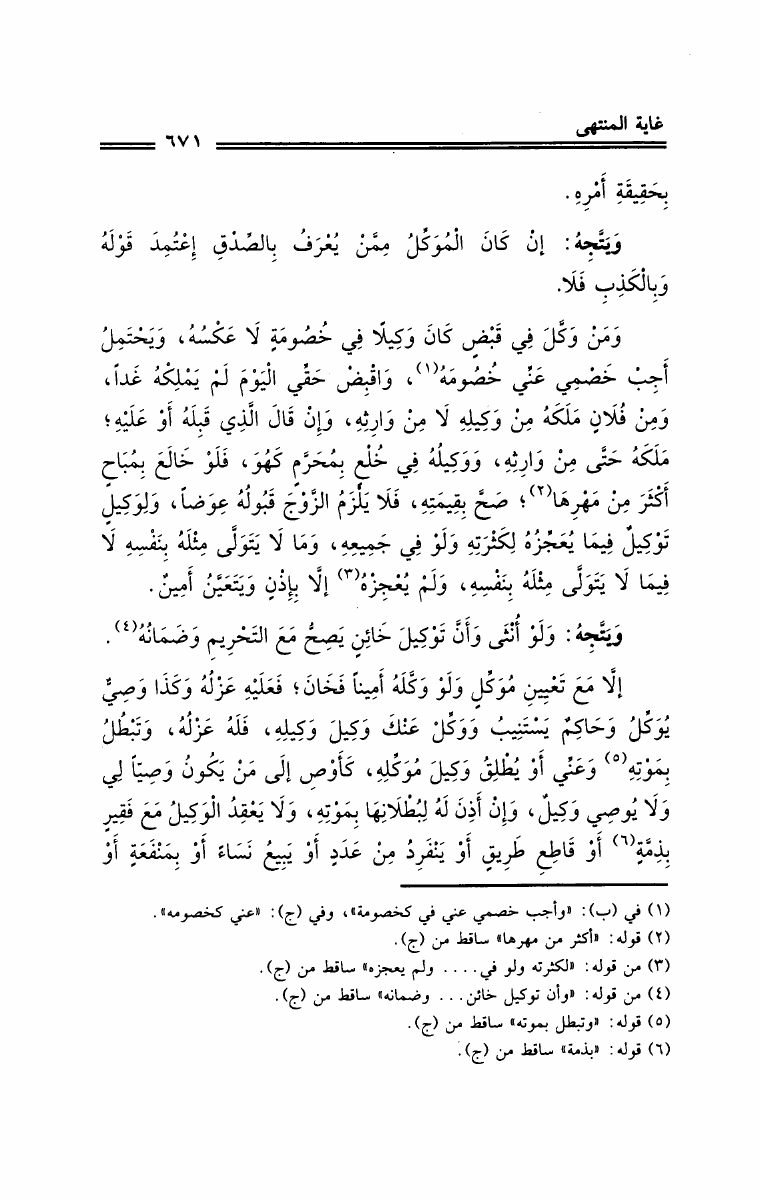 غاية المنتهى
٦٧١
بِحَقِيقَةِ أَمْرِهِ.
وَيَتَّجِهُ: إنْ كَانَ الْمُوَكِّلُ مِمَّنْ يُعْرَفُ بِالصِّدْقِ إعْتُمِدَ قَوْلَهُ
وَبِالْكَذِبِ فَلَا.
وَمَنْ وَكَّلَ فِي قَبْضٍ كَانَ وَكِيلًا فِي خُصُومَةٍ لَا عَكْسُهُ، وَيَحْتَمِلُ
أَجِبْ خَصْمِي عَنِّي خُصُومَهُ(١)، وَاقْبِضْ حَقِّي الْيَوْمَ لَمْ يَمْلِكْهُ غَداً،
وَمِنْ فُلَانٍ مَلَكَهُ مِنْ وَكِيلِهِ لَا مِنْ وَارِثِهِ، وَإِنْ قَالَ الَّذِي قَبِلَهُ أَوْ عَلَيْهِ؛
مَلَكَهُ حَتَّى مِنْ وَارِثِهِ، وَوَكِيلُهُ فِي خُلْعٍ بِمُحَرَّمٍ كَهُوَ، فَلَوْ خَالَعَ بِمُبَاحٍ
أَكْثَرَ مِنْ مَهْرِهَا(٢)؛ صَحَّ بِقِيمَتِهِ، فَلَا يَلْزَمُ الزَّوْجَ قَبُولُهُ عِوَضاً، وَلِوَكِيلٍ
تَوْكِيلٌ فِيمَا يُعَجِّزُهُ لِكَثْرَتِهِ وَلَوْ فِي جَمِيعِهِ، وَمَا لَا يَتَوَلَّى مِثْلَهُ بِنَفْسِهِ لَا
فِيمَا لَا يَتَوَلَّى مِثْلَهُ بِنَفْسِهِ، وَلَمْ يُعْجِزْهُ(٣) إلَّا بِإِذْنٍ وَيَتَعَيَّنُ أَمِينٌ.
وَيَتَّجِهُ: وَلَوْ أُنْثَى وَأَنَّ تَوْكِيلَ خَائِنٍ يَصِحُّ مَعَ التَحْرِيمِ وَضَمَانُهُ(٤).
إلَّا مَعَ تَعْيِينِ مُوَكِّلٍ وَلَوْ وَكَّلَهُ أَمِيناً فَخَانَ؛ فَعَلَيْهِ عَزْلُهُ وَكَذَا وَصِيٌّ
يُوَكِّلُ وَحَاكِمٌ يَسْتَنِيبُ وَوَكِّلْ عَنْكَ وَكِيلَ وَكِيلِهِ، فَلَهُ عَزْلُهُ، وَتَبْطُلُ
بِمَوْتِهِ(٥) وَعَنِّي أَوْ يُطْلِقُ وَكِيلَ مُوَكِّلِهِ، كَأَوْصِ إلَى مَنْ يَكُونُ وَصِيّاً لِي
وَلَا يُوصِي وَكِيلٌ، وَإِنْ أَذِنَ لَهُ لِبُطْلَانِهَا بِمَوْتِهِ، وَلَا يَعْقِدُ الْوَكِيلُ مَعَ فَقِيرٍ
بِذِمَّةٍ(٦) أَوْ قَاطِعِ طَرِيقٍ أَوْ يَنْفَرِدُ مِنْ عَدَدٍ أَوْ يَبِيعُ نَسَاءً أَوْ بِمَنْفَعَةٍ أَوْ
(١) في (ب): «وأجب خصمي عني في كخصومة»، وفي (ج): «عني كخصومه».
(٢) قوله: «أكثر من مهرها» ساقط من (ج).
(٣) من قوله: «لكثرته ولو في.... ولم يعجزه» ساقط من (ج).
(٤) من قوله: «وأن توكيل خائن... وضمانه» ساقط من (ج).
(٥) قوله: «وتبطل بموته» ساقط من (ج).
(٦) قوله: «بذمة» ساقط من (ج).